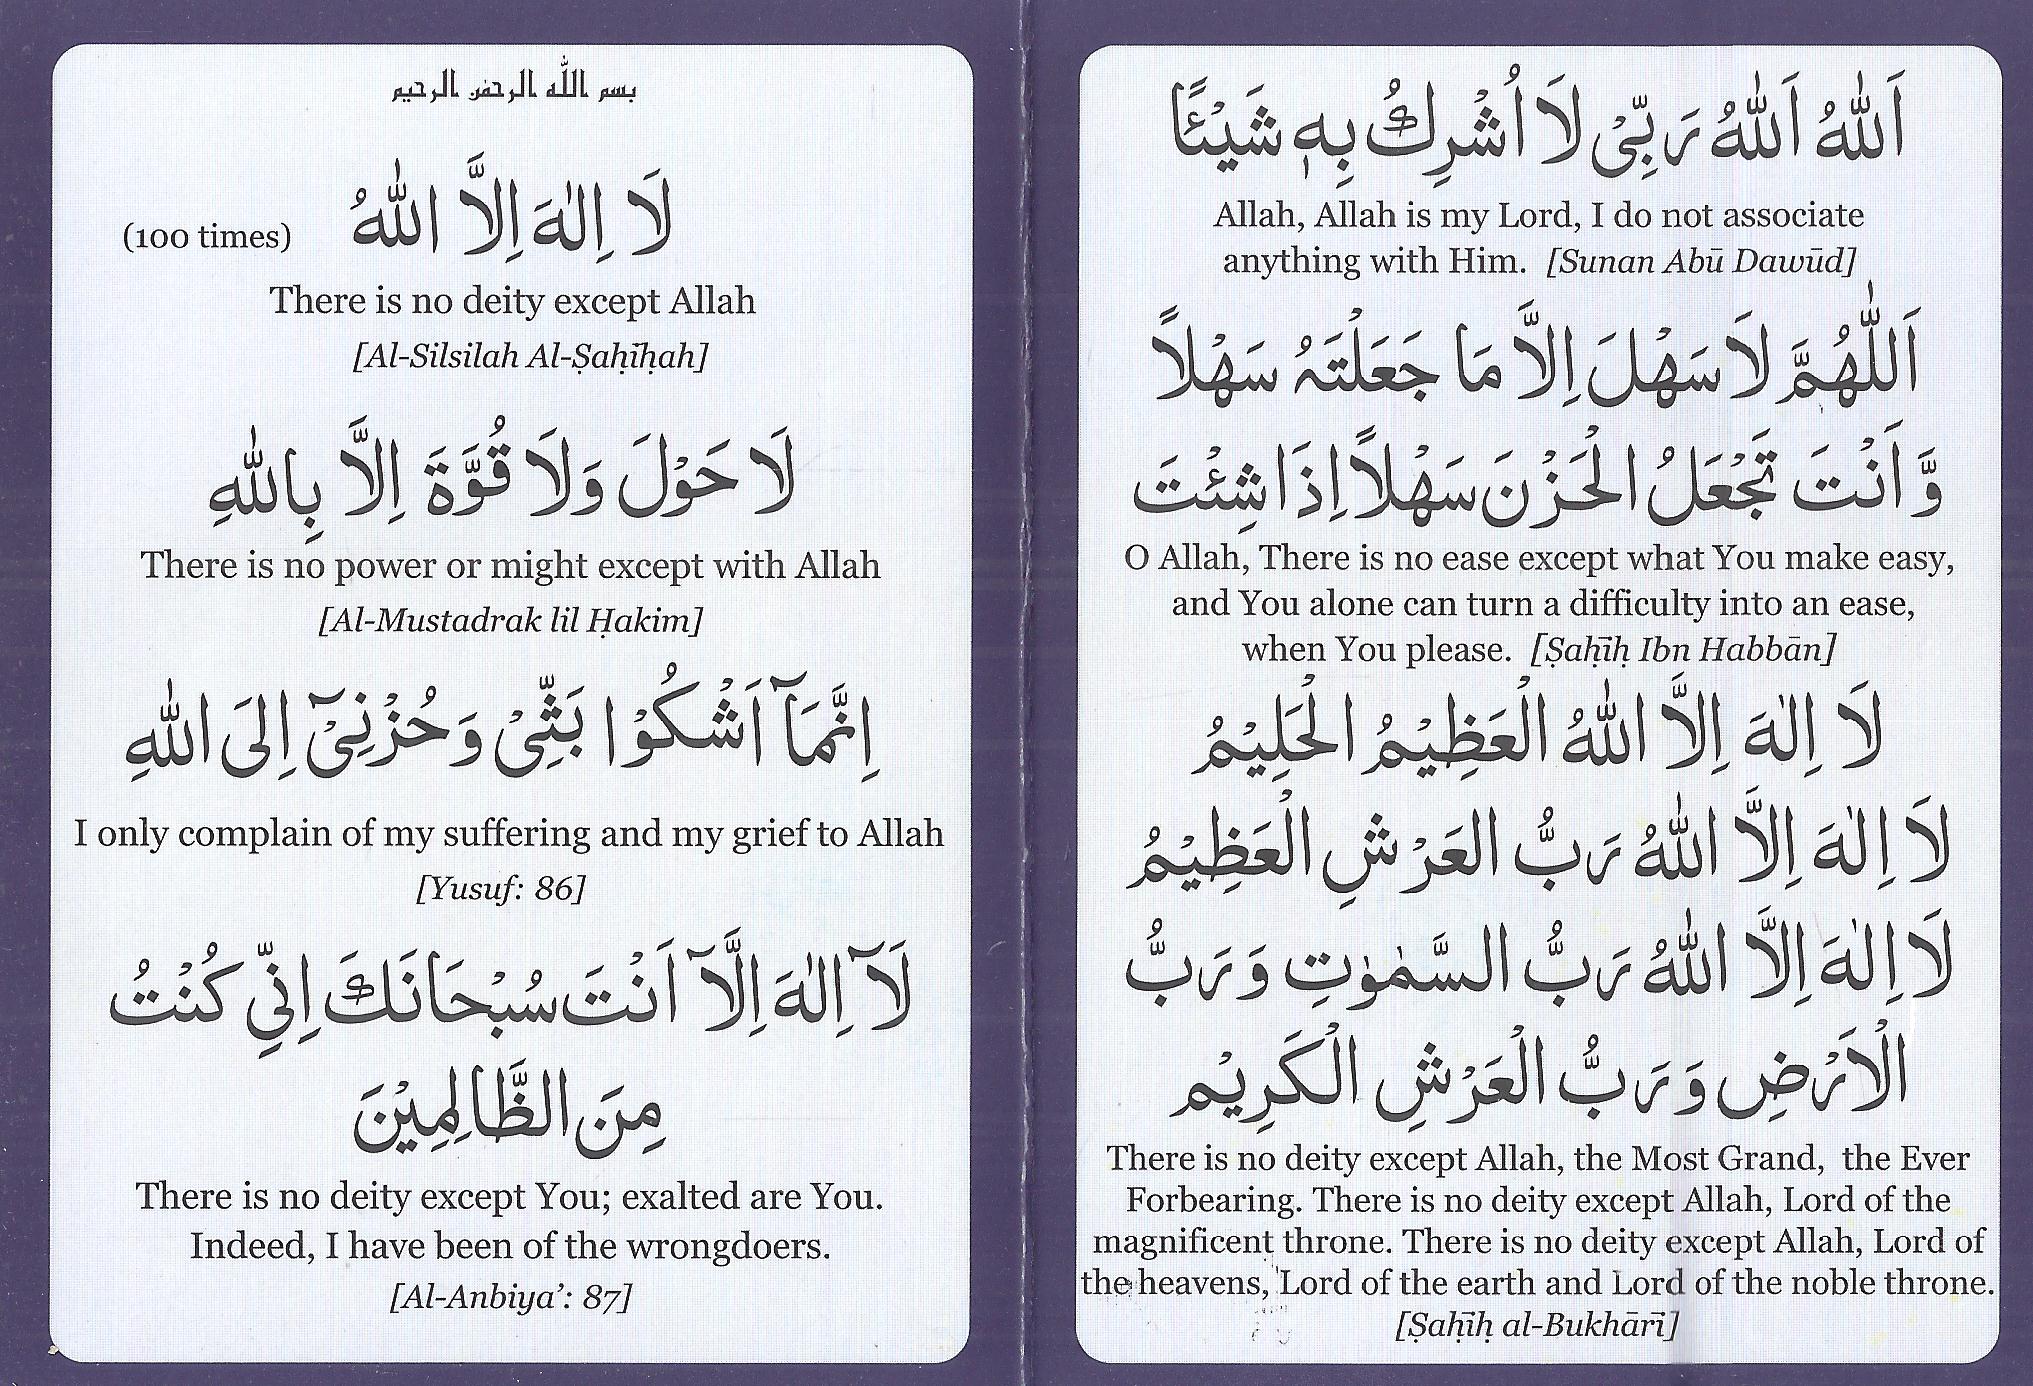 بسم الله الرحمن الرحيم
لَا اِلٰهَ اِلَّا اللّٰهُ (100 times)
There is no deity except Allah
[Al-Silsilah Al-Ṣaḥīḥah]
لَا حَوْلَ وَلَا قُوَّةَ اِلَّا بِاللّٰهِ
There is no power or might except with Allah
[Al-Mustadrak lil Ḥakim]
اِنَّمَآ اَشْكُوْا بَثِّىْ وَحُزْنِىْٓ اِلَى اللّٰهِ
I only complain of my suffering and my grief to Allah
[Yusuf: 86]
لَآ اِلٰهَ اِلَّآ اَنْتَ سُبْحَانَكَ اِنِّي كُنْتُ
مِنَ الظَّالِمِيْنَ
There is no deity except You; exalted are You.
Indeed, I have been of the wrongdoers.
[Al-Anbiya’: 87]
اَللّٰهُ اَللّٰهُ رَبِّىْ لَا اُشْرِكُ بِهٖ شَيْئًا
Allah, Allah is my Lord, I do not associate
anything with Him. [Sunan Abū Dawūd]
اَللّٰهُمَّ لَا سَهْلَ اِلَّا مَا جَعَلْتَهُ سَهْلًا
وَّ اَنْتَ تَجْعَلُ الْحَزْنَ سَهْلًا اِذَا شِئْتَ
O Allah, There is no ease except what You make easy,
and You alone can turn a difficulty into an ease,
when You please. [Ṣaḥīḥ Ibn Habbān]
لَا اِلٰهَ اِلَّا اللّٰهُ الْعَظِيْمُ الْحَلِيْمُ
لَا اِلٰهَ اِلَّا اللّٰهُ رَبُّ العَرْشِ الْعَظِيْمُ
لَا اِلٰهَ اِلَّا اللّٰهُ رَبُّ السَّمٰوٰتِ وَرَبُّ
الْاَرْضِ وَرَبُّ الْعَرْشِ الْكَرِيْم
There is no deity except Allah, the Most Grand, the Ever
Forbearing. There is no deity except Allah, Lord of the
magnificent throne. There is no deity except Allah, Lord of
the heavens, Lord of the earth and Lord of the noble throne.
[Ṣaḥīḥ al-Bukhārī]